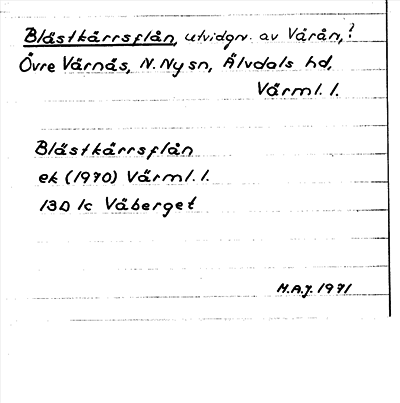 Blästkärrsflån, utvidgn. av Vårån,?
Övre Värnäs, N. Ny sn, Älvdals hd,
Värml. l.
Blästkärrsflån
ek (1970) Värml. l.
13D 1c Våberget
H.A.J. 1971